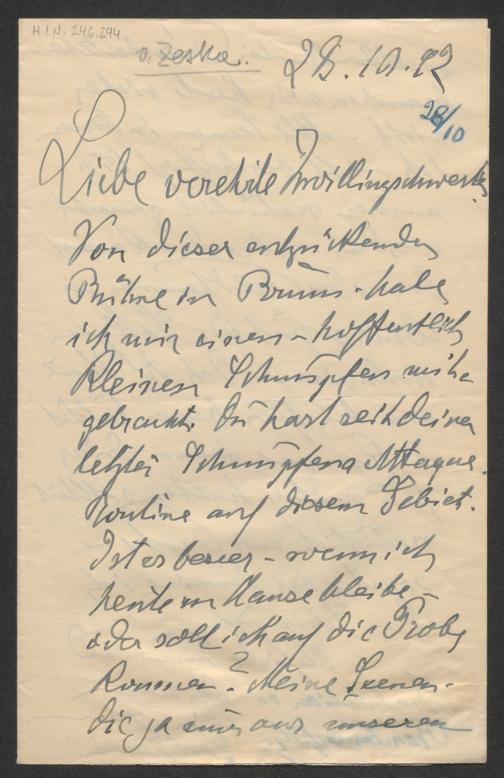 H.I.N. 246.294
v. Zeska.
28.10.92
28/10
Liebe verehrte Zwillingschwester
Von dieser entzückenden
Bühne in Brünn - habe
ich mir einen - hoffentlich
kleinen Schnupfen mit-
gebracht. Du hast seit deiner
letzten Schnupfens Attaque
Routine auf diesem Gebiet.
Ist es besser - wenn ich
heute im Hause bleibe -
oder soll ich auf die Probe
kommen? Meine Scenen -
die ja nur aus unseren